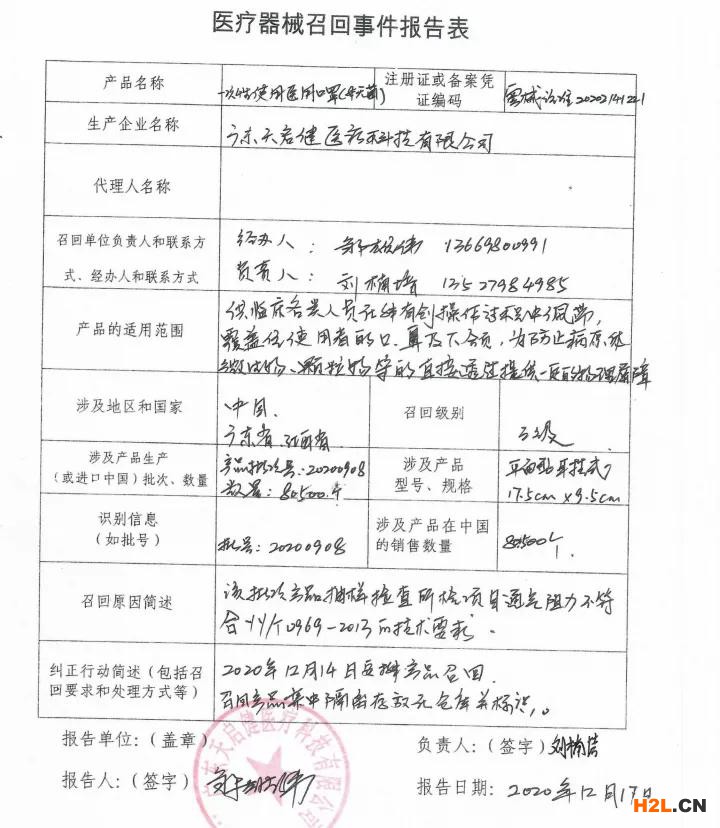 医疗器械召回事件报告表
产品名称
一次性使用医用口罩(非无菌)
注册证或备案凭
证编码
粤械注准20202141221
生产企业名称
广东天启健医疗科技有限公司
代理人名称
召回单位负责人和联系方
式、经办人和联系方式
经办人： 伟 13669800991
负责人： 刘楠培 13527984985
产品的适用范围
供临床各类人员在非有创操作过程中佩带,
覆盖住使用者的口、鼻及下颌,为防止病原体
微生物、颗粒物等的直接透过提供一定的物理屏障
涉及地区和国家
中国.
广东省.江西省
召回级别
三级
涉及产品生产
（或进口中国）批次、数量
产品批次号:20200908
数量:80500个
涉及产品
型号、规格
平面型耳挂式
17.5cm×9.5cm
识别信息
（如批号）
批号:20200908
涉及产品在中国
的销售数量
80500个
召回原因简述
该批次产品抽样检查所检项目通气阻力不符
合YY/T0969-2013的技术要求.
纠正行动简述（包括召
回要求和处理方式等）
2020年12月14日安排产品召回.
召回产品集中隔离存放于仓库并标识。
报告单位：（盖章）
广东天启健医疗科技有限公司
负责人：（签字）刘楠培
报告人：（签字）
报告日期：2020年12月17日
H2L.CN